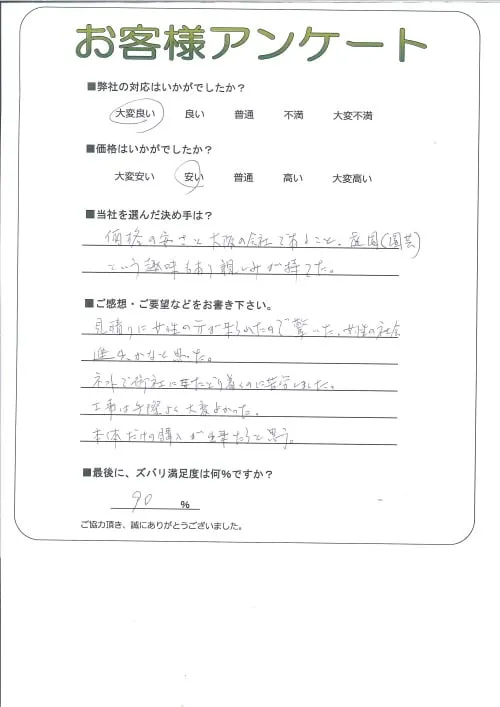 お客様アンケート
■弊社の対応はいかがでしたか？
大変良い 良い 普通 不満 大変不満
■価格はいかがでしたか？
大変安い 安い 普通 高い 大変高い
■当社を選んだ決め手は？
価格の安さと大阪の会社であること、庭園(園芸)
という趣味もあり親しみが持てた。
■ご感想・ご要望などをお書き下さい。
見積りに女性の方が来られたので驚いた。女性の社会
進出かなと思った。
ネットで御社にたどり着くのに苦労しました。
工事は手際よく大変よかった。
本体だけの購入が出来たらと思う。
■最後に、ズバリ満足度は何%ですか？
90 %
ご協力頂き、誠にありがとうございました。